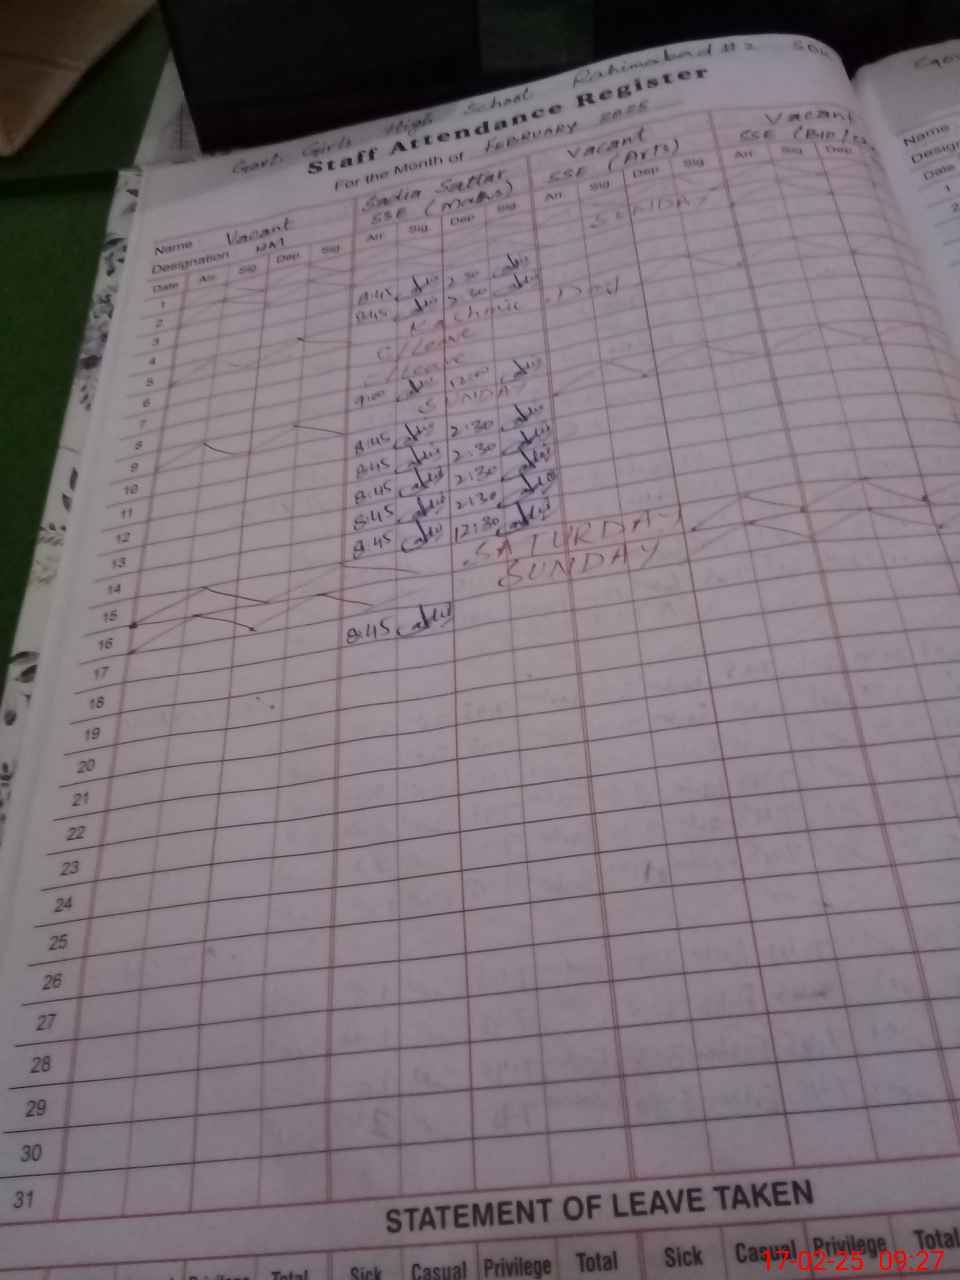 Govt. Girls High School Rahimabad #2
Staff Attendance Register
For the Month of FEBRUARY 2025
Name Vacant Sadia Sattar Vacant Vacant Name
Designation HM SSE (Maths) SSE (Arts) SSE (Bio/
Date Arr Sig Dep Sig Arr Sig Dep Sig Arr Sig Dep Sig Arr Sig Dep Date
1
2 SUNDAY
3 8:45 2:30
4 8:45 2:30
5 Kashmir Day
6 C/Leave
7 C/Leave
8 9:00 12:00
9 SUNDAY
10 8:45 2:30
11 8:45 2:30
12 8:45 2:30
13 8:45 2:30
14 8:45 12:30
15 SATURDAY
16 SUNDAY
17 8:45
18
19
20
21
22
23
24
25
26
27
28
29
30
31
STATEMENT OF LEAVE TAKEN
Total Sick Casual Privilege Total Sick Casual Privilege Total
17-02-25 09:27